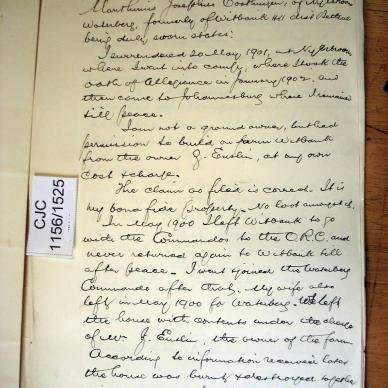 Marthinus Josephus Oosthuizen, of Nylstroom
Waterberg, formerly of Witbank 411 dist
being duly sworn states:
I surrendered 20 May, 1901, at Nylstroom
where I went into camp, where I took the
oath of Allegiance in January 1902, and
then came to Johannesburg where I remained
till peace.
I am not a ground owner, but had
permission to build on farm Witbank
from the owner J. Enslin, at my own
cost & charge.
The claim as filed is correct. It is
my bona fide property. No loot amongst it.
In May 1900 I left Witbank to go
with the Commandos to the O.R.C. and
never returned again to Witbank till
after peace. I went joined the Waterberg
Commando after that. My wife also
left in May 1900 for Waterberg. We left
the house with contents under the charge
of Mr J. Enslin, the owner of the farm.
According to information received later
the house was burnt & destroyed together
CJC
1156/1525